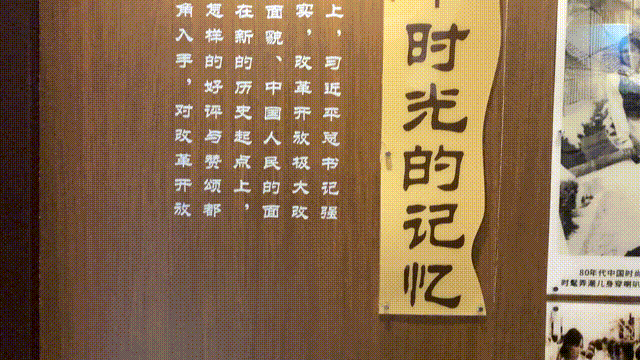 时光的记忆
上，习近平总书记强
实，改革开放极大改
面貌、中国人民的面
在新的历史起点上，
怎样的好评与赞颂都
角入手，对改革开放
80年代中国时尚
时髦弄潮儿身穿喇叭